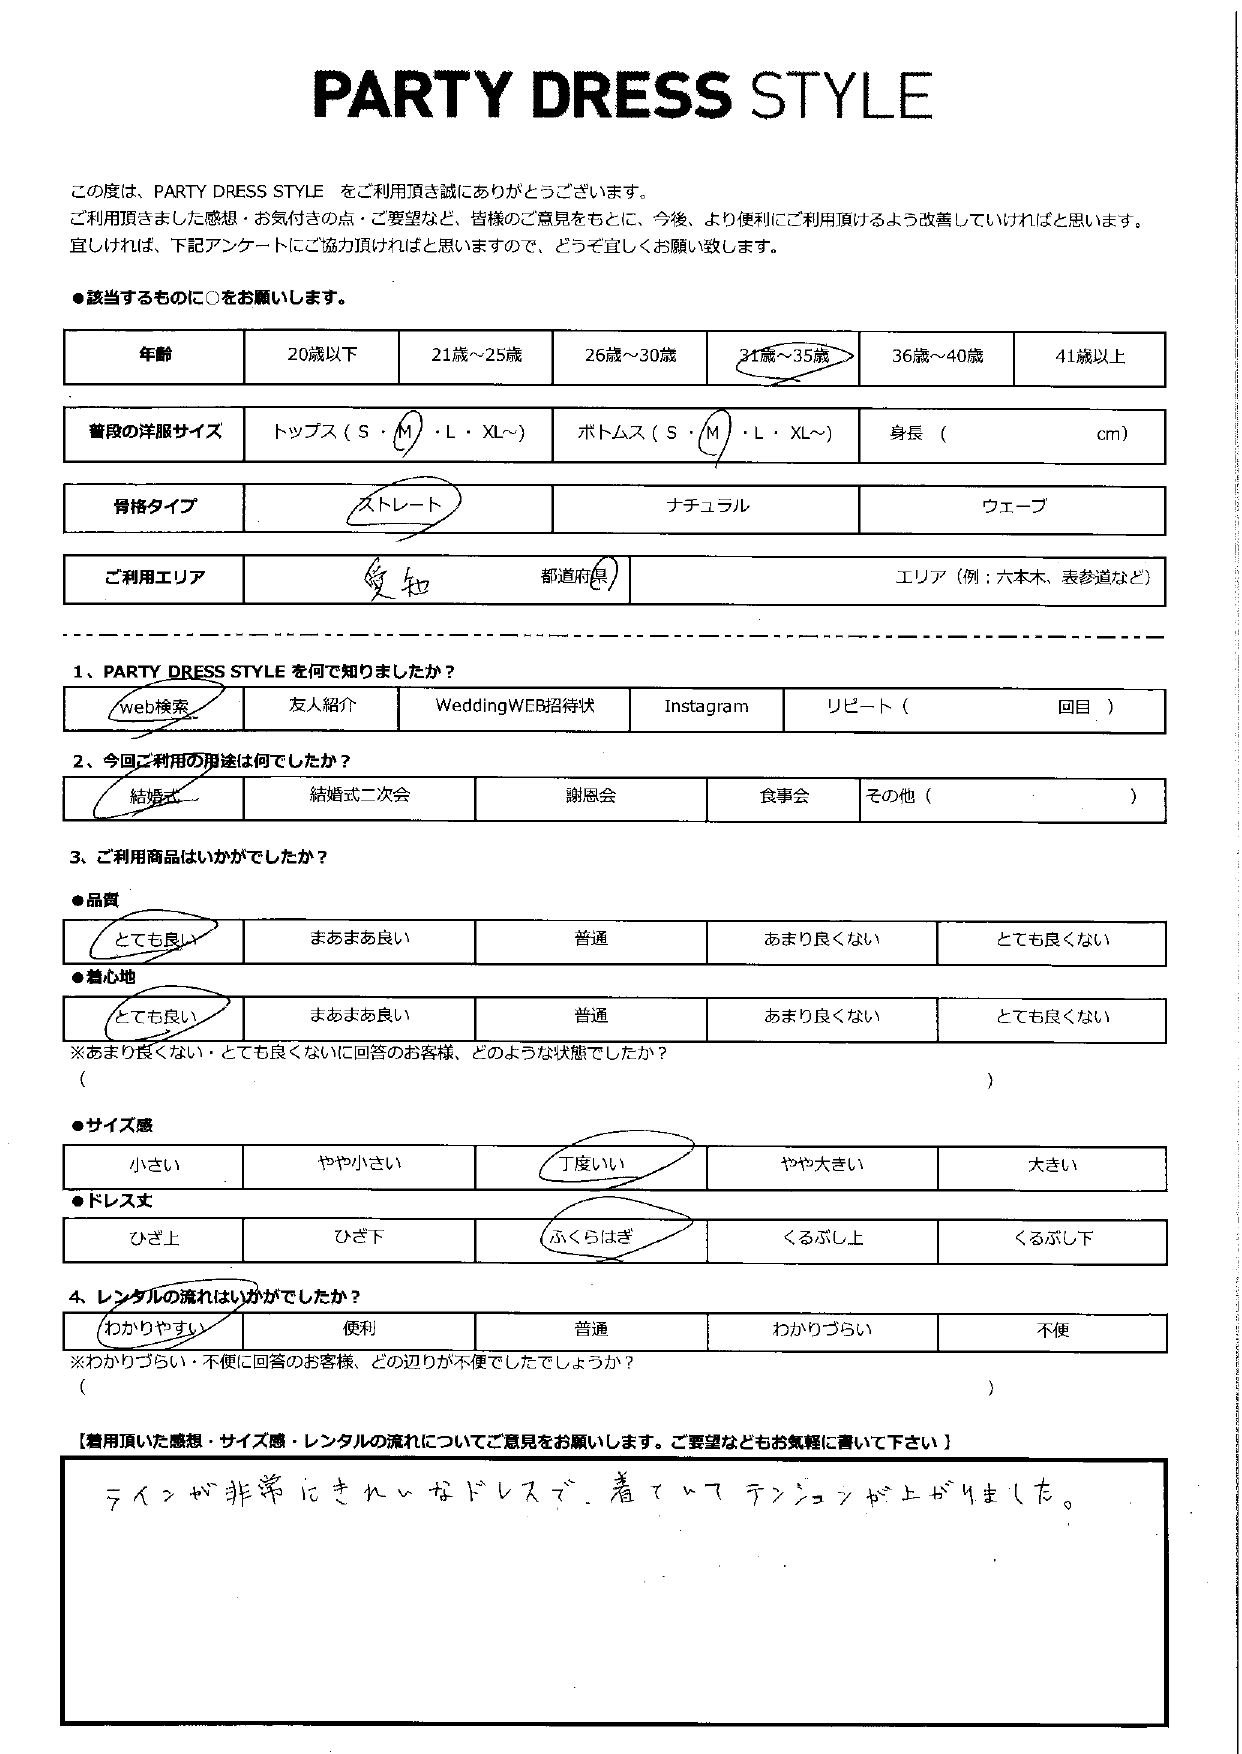 PARTY DRESS STYLE
この度は、PARTY DRESS STYLE をご利用頂き誠にありがとうございます。
ご利用頂きました感想・お気付きの点・ご要望など、皆様のご意見をもとに、今後、より便利にご利用頂けるよう改善していければと思います。
宜しければ、下記アンケートにご協力頂ければと思いますので、どうぞ宜しくお願い致します。
●該当するものに○をお願いします。
年齢 20歳以下 21歳～25歳 26歳～30歳 31歳～35歳 36歳～40歳 41歳以上
普段の洋服サイズ トップス ( S ・ M ・L ・ XL～) ボトムス ( S ・ M ・L ・ XL～) 身長 ( cm)
骨格タイプ ストレート ナチュラル ウェーブ
ご利用エリア 愛知 都道府県 エリア（例；六本木、表参道など）
1、PARTY DRESS STYLE を何で知りましたか？
web検索 友人紹介 WeddingWEB招待状 Instagram リピート ( 回目 )
2、今回ご利用の用途は何でしたか？
結婚式 結婚式二次会 謝恩会 食事会 その他 ( )
3、ご利用商品はいかがでしたか？
●品質
とても良い まあまあ良い 普通 あまり良くない とても良くない
●着心地
とても良い まあまあ良い 普通 あまり良くない とても良くない
※あまり良くない・とても良くないに回答のお客様、どのような状態でしたか？
( )
●サイズ感
小さい やや小さい 丁度いい やや大きい 大きい
●ドレス丈
ひざ上 ひざ下 ふくらはぎ くるぶし上 くるぶし下
4、レンタルの流れはいかがでしたか？
わかりやすい 便利 普通 わかりづらい 不便
※わかりづらい・不便に回答のお客様、どの辺りが不便でしたでしょうか？
( )
【着用頂いた感想・サイズ感・レンタルの流れについてご意見をお願いします。ご要望などもお気軽に書いて下さい 】
ラインが非常にきれいなドレスで、着ていてテンションが上がりました。